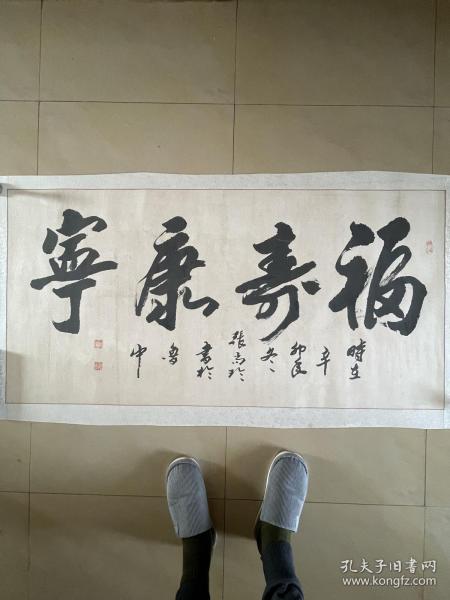 福寿康寧
時在
辛
卯
冬
張志玲
書於
魯
中
孔夫子旧书网
www.kongfz.com